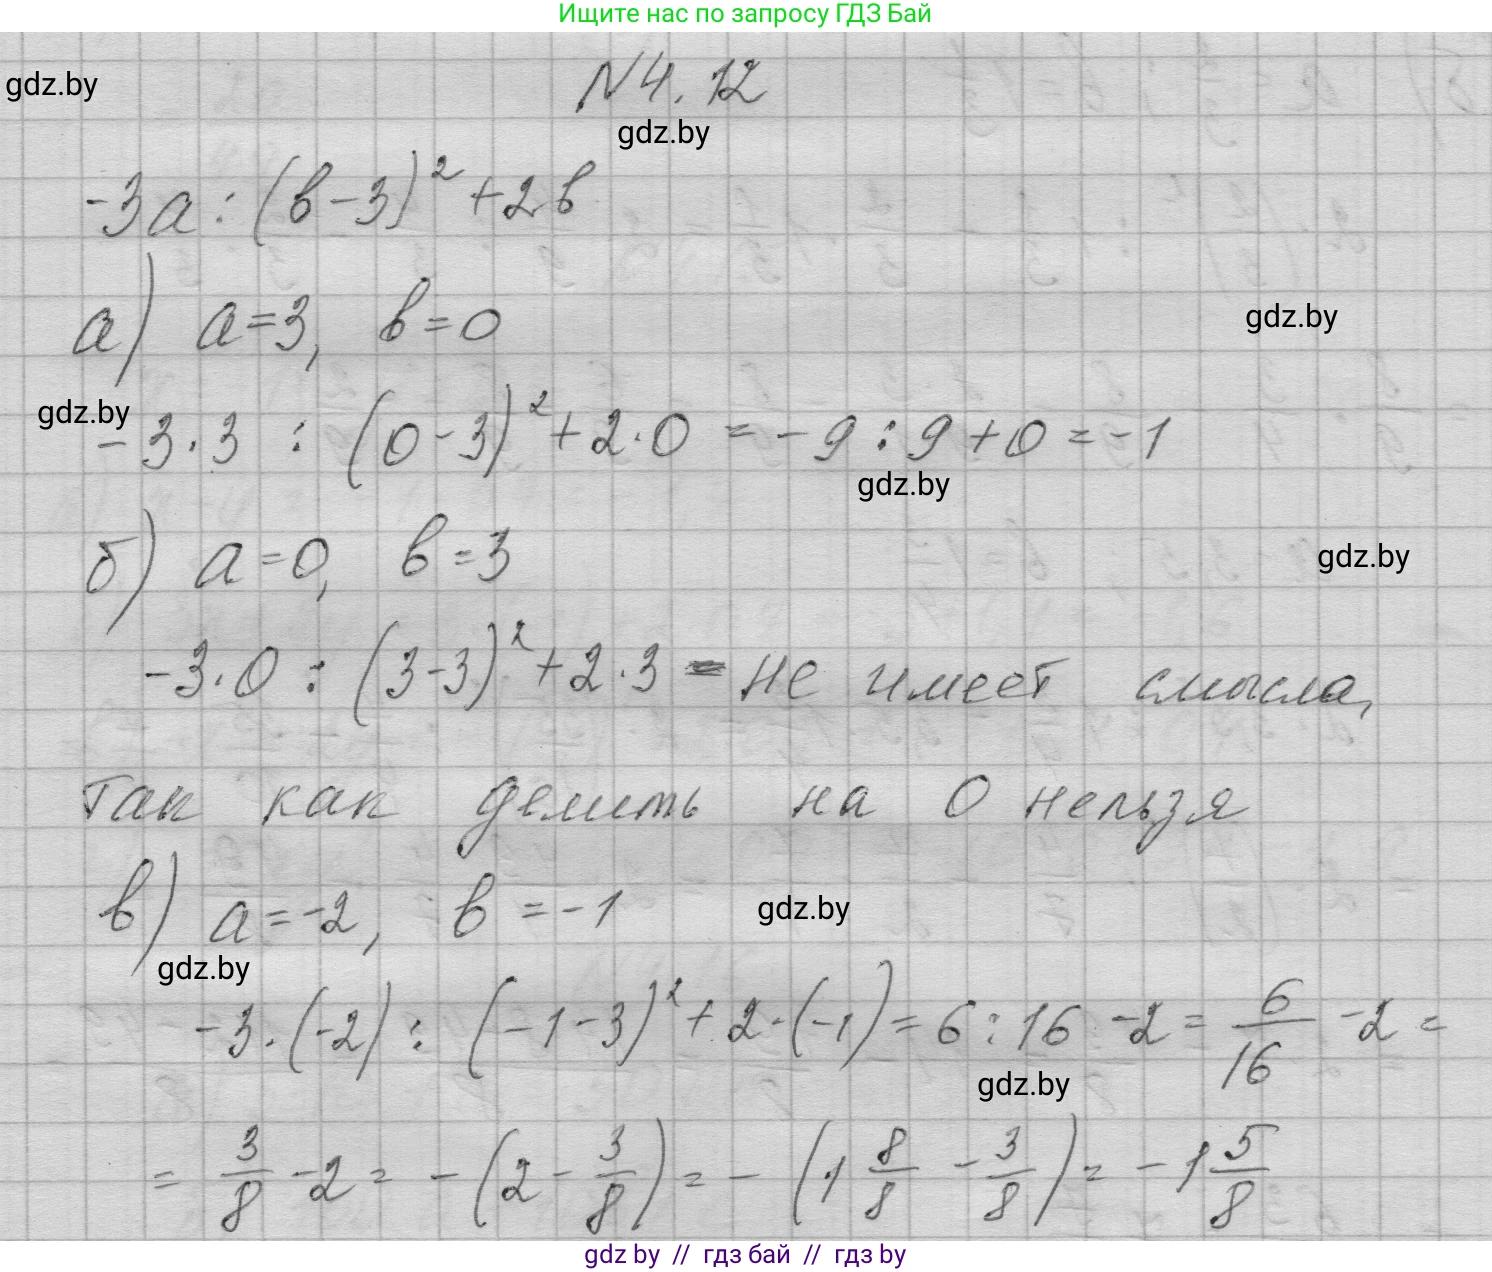 Ищите нас по запросу ГДЗ Бай
gdz.by
N4.12
gdz.by
-3a : (в-3)² + 2в
а) a=3, в=0
gdz.by
gdz.by
-3·3 : (0-3)² + 2·0 = -9 : 9 + 0 = -1
gdz.by
б) a=0, в=3
gdz.by
-3·0 : (3-3)² + 2·3 = не имеет смысла,
так как делить на 0 нельзя
в) a=-2, в=-1
gdz.by
gdz.by
-3·(-2) : (-1-3)² + 2·(-1) = 6:16 -2 = 6/16 -2 =
gdz.by
= 3/8 -2 = -(2 - 3/8) = -(1 8/8 - 3/8) = -1 5/8
gdz by // гдз бай // гдз by